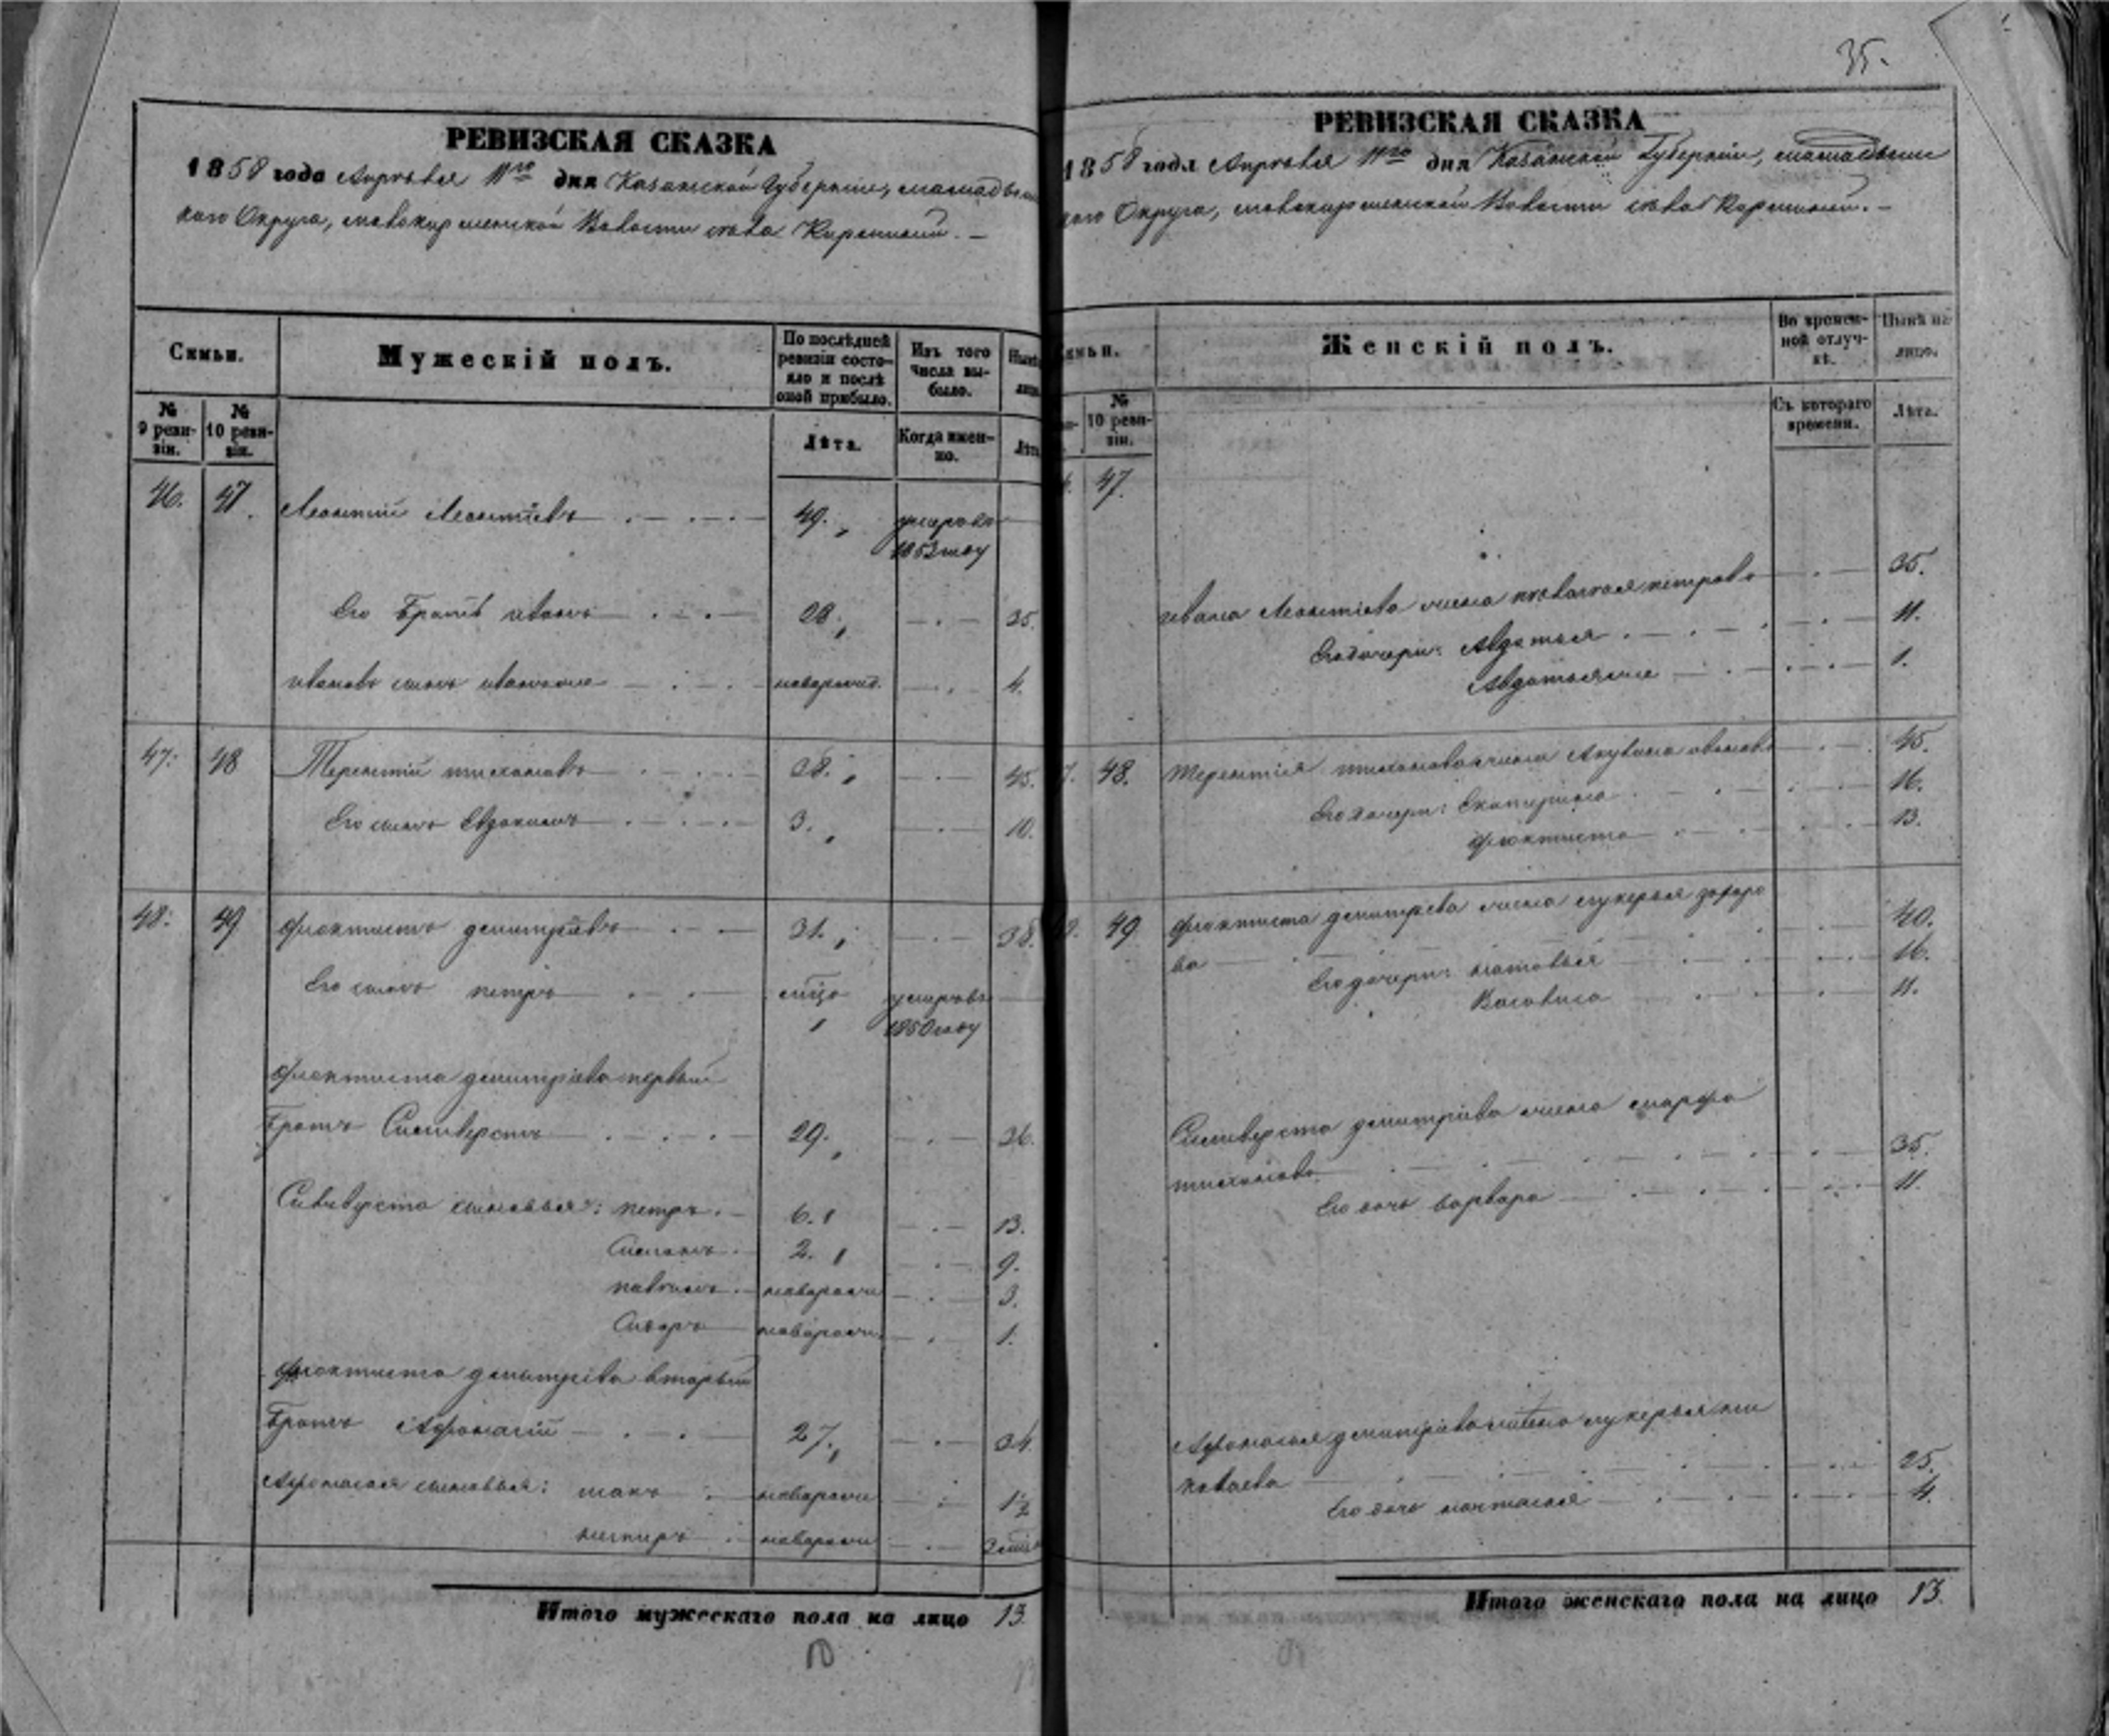 35.
РЕВИЗСКАЯ СКАЗКА
1858 года Апрѣля 11го дня Казанской Губерніи, Мамадыш
скаго Округа, Волости села
Семьи.
Мужескій полъ.
По послѣдней ревизіи состояло и послѣ оной прибыло.
Изъ того числа выбыло.
Нынѣ
№ 9 ревизіи.
№ 10 ревизіи.
Лѣта.
Когда именно.
Лѣта
46. 47. Леонтий Леонтіевъ 49. умеръ въ
1852 году
Его Братъ иванъ 28. 35.
ивановъ сынъ новорожд. 4.
47. 48 Терентій тихоновъ 38. 45.
Его сынъ Евдокимъ 3. 10.
48. 49 феоктистъ демитріевъ 31. 38.
Его сынъ петръ умеръ въ
1850 году
феоктиста демитріева первый
Братъ Сильверстъ 29. 36.
Сильверста сыновья: петръ. 6. 13.
Симионъ 2. 9.
новорож 3.
новорож. 1.
феоктиста демитріева вторый
Братъ Афонасій 27. 34.
Афонасья сыновья: новорож 1½
новорож
Итого мужескаго пола на лицо 13
РЕВИЗСКАЯ СКАЗКА
1858 года Апрѣля 11го дня Казанской Губерніи, Мамадыш
скаго Округа, Волости села
Семьи.
Женскій полъ.
Во временной отлучкѣ.
Нынѣ на лицо.
№ 10 ревизіи.
Съ котораго времени.
Лѣта.
47.
ивана Леонтіева жена петрова 35.
Его дочери: Авдотья 11.
1.
48. терентія тихонова жена Акулина 45.
Его дочери: Екатерина 16.
феоктиста 13.
49 феоктиста демитріева жена лукерья захаро
ва 40.
Его дочери: наталья 16.
Василиса 11.
Сильверста демитріева жена марфа
тихонова 35.
Его дочь варвара 11.
Афонасья демитріева жена лукерья ни
колаева 25.
Его дочь настасья 4.
Итого женскаго пола на лицо 13.